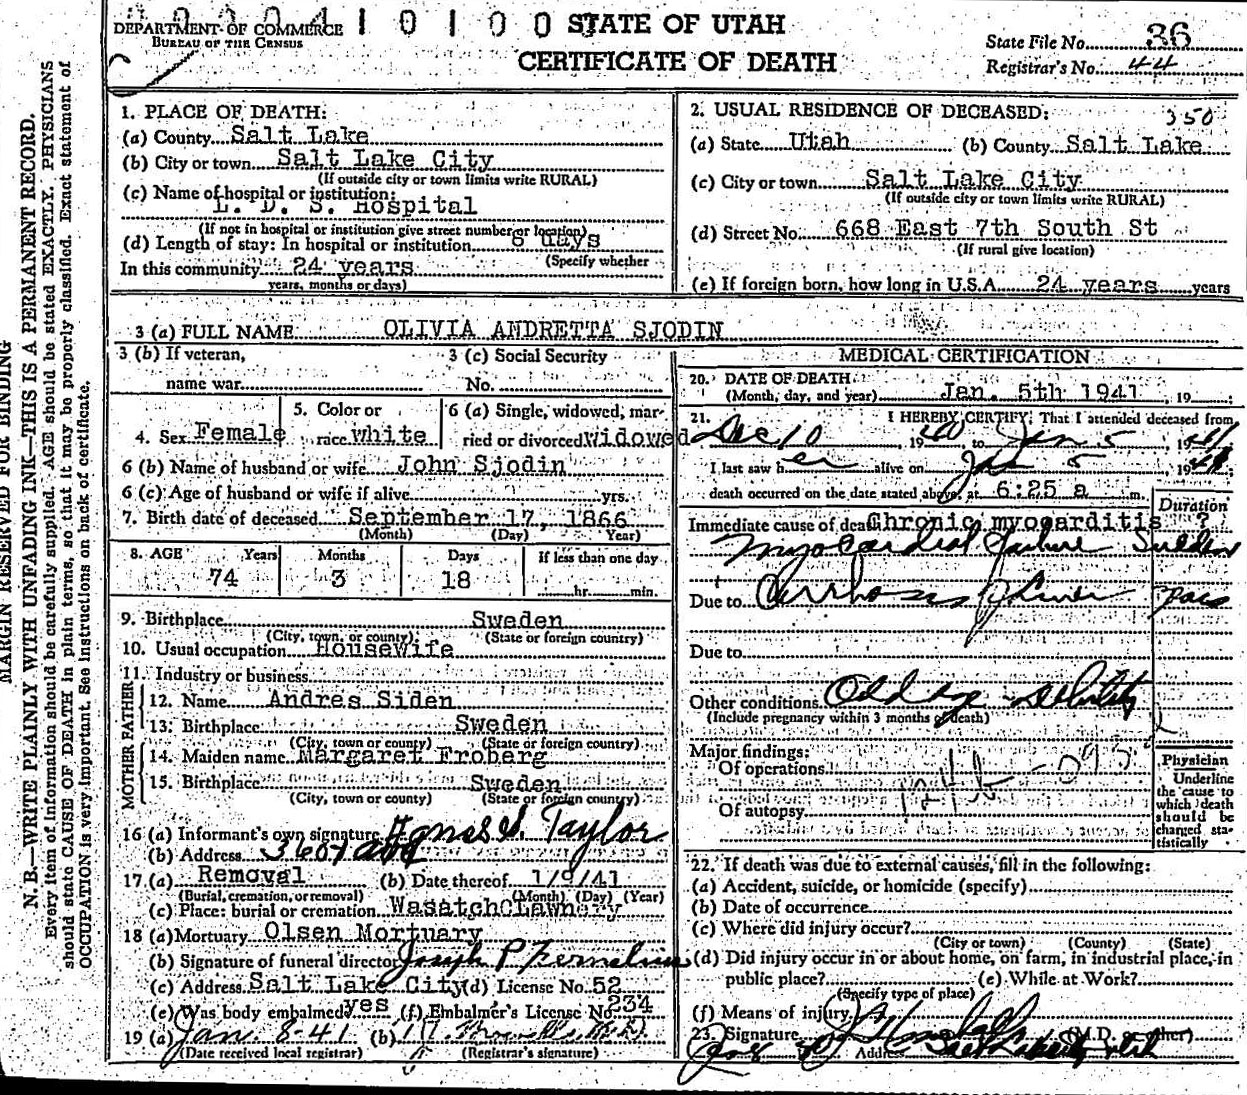 DEPARTMENT OF COMMERCE
BUREAU OF THE CENSUS
STATE OF UTAH
CERTIFICATE OF DEATH
State File No. 36
Registrar's No. 44
MARGIN RESERVED FOR BINDING
N. B.—WRITE PLAINLY WITH UNFADING INK—THIS IS A PERMANENT RECORD.
Every item of information should be carefully supplied. AGE should be stated EXACTLY. PHYSICIANS
should state CAUSE OF DEATH in plain terms, so that it may be properly classified. Exact statement of
OCCUPATION is very important. See instructions on back of certificate.
1. PLACE OF DEATH:
(a) County Salt Lake
(b) City or town Salt Lake City
(If outside city or town limits write RURAL)
(c) Name of hospital or institution:
L. D. S. Hospital
(If not in hospital or institution give street number or location)
(d) Length of stay: In hospital or institution 8 days
(Specify whether
In this community 24 years
years, months or days)
2. USUAL RESIDENCE OF DECEASED: 350
(a) State Utah (b) County Salt Lake
(c) City or town Salt Lake City
(If outside city or town limits write RURAL)
(d) Street No. 668 East 7th South St
(If rural give location)
(e) If foreign born, how long in U.S.A. 24 years years
3 (a) FULL NAME OLIVIA ANDRETTA SJODIN
3 (b) If veteran, 3 (c) Social Security
name war No.
4. Sex Female 5. Color or race white 6 (a) Single, widowed, married or divorced widowed
6 (b) Name of husband or wife John Sjodin
6 (c) Age of husband or wife if alive yrs.
7. Birth date of deceased September 17, 1866
(Month) (Day) Year)
8. AGE Years Months Days If less than one day
74 3 18 hr. min.
9. Birthplace Sweden
(City, town, or county) (State or foreign country)
10. Usual occupation Housewife
11. Industry or business
FATHER
12. Name Andres Siden
13. Birthplace Sweden
(City, town or county) (State or foreign country)
MOTHER
14. Maiden name Margaret Froberg
15. Birthplace Sweden
(City, town or county) (State or foreign country)
16 (a) Informant's own signature Taylor
(b) Address
17. (a) Removal (b) Date thereof 1/9/41
(Burial, cremation, or removal) (Month) (Day) (Year)
(c) Place: burial or cremation Wasatch Lawn
18 (a) Mortuary Olsen Mortuary
(b) Signature of funeral director Joseph P Fernelius
(c) Address Salt Lake City (d) License No. 52
(e) Was body embalmed yes (f) Embalmer's License No. 234
19 (a) Jan. 8-41 (b)
(Date received local registrar) (Registrar's signature)
MEDICAL CERTIFICATION
20. DATE OF DEATH
(Month, day, and year) Jan. 5th 1941, 19
21. I HEREBY CERTIFY, That I attended deceased from
Dec 10 1940 to Jan 5 1941
I last saw her alive on Jan 5 1941
death occurred on the date stated above, at 6:25 a m.
Duration
Immediate cause of death Chronic myocarditis ?
Myocardial failure Sudden
Due to Cirrhosis of Liver
Due to
Other conditions Old age debility
(Include pregnancy within 3 months of death)
Major findings:
Of operations
Of autopsy
Physician
Underline
the cause to
which death
should be
charged sta-
tistically
22. If death was due to external causes, fill in the following:
(a) Accident, suicide, or homicide (specify)
(b) Date of occurrence
(c) Where did injury occur?
(City or town) (County) (State)
(d) Did injury occur in or about home, on farm, in industrial place, in
public place? (e) While at Work?
(Specify type of place)
(f) Means of injury
23. Signature (M.D. or other)
Address